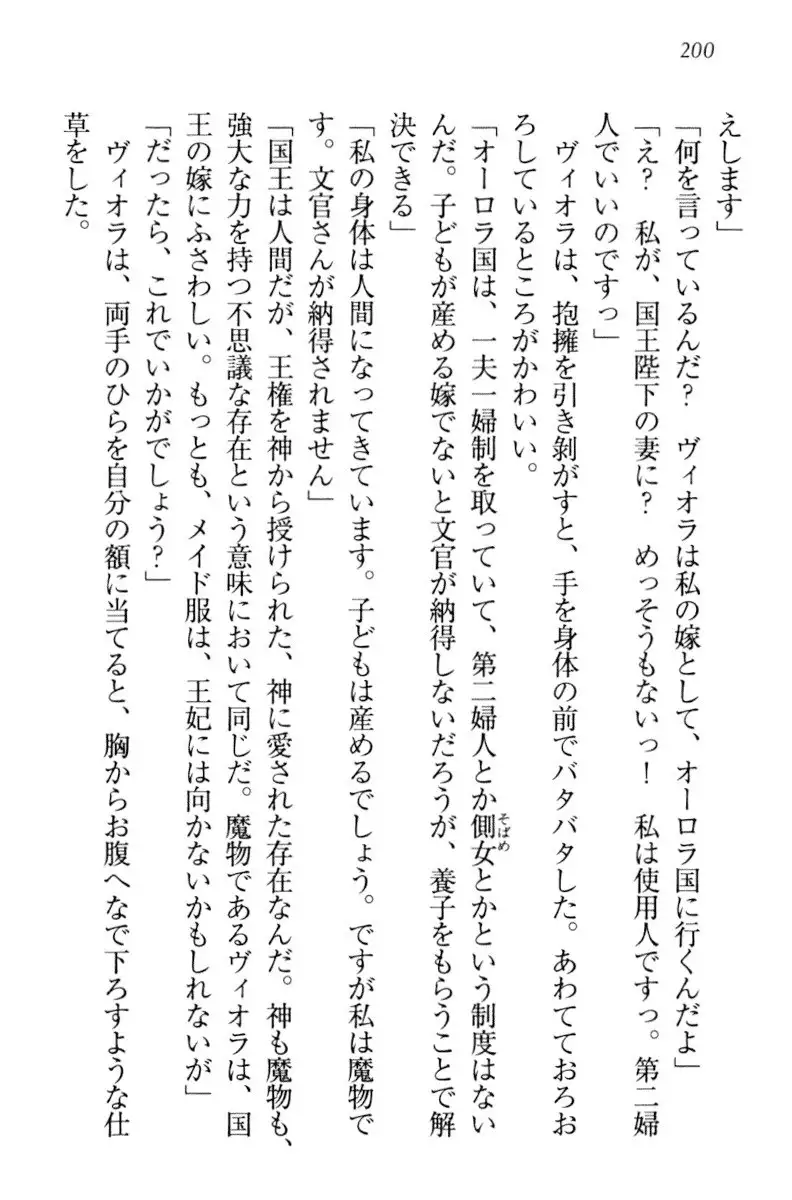 200
えします」
「何を言っているんだ？　ヴィオラは私の嫁として、オーロラ国に行くんだよ」
「え？　私が、国王陛下の妻に？　めっそうもないっ！　私は使用人ですっ。第二婦
人でいいのですっ」
　ヴィオラは、抱擁を引き剥がすと、手を身体の前でバタバタした。あわてておろお
ろしているところがかわいい。
「オーロラ国は、一夫一婦制を取っていて、第二婦人とか側女とかという制度はない
んだ。子どもが産める嫁でないと文官が納得しないだろうが、養子をもらうことで解
決できる」
「私の身体は人間になってきています。子どもは産めるでしょう。ですが私は魔物で
す。文官さんが納得されません」
「国王は人間だが、王権を神から授けられた、神に愛された存在なんだ。神も魔物も、
強大な力を持つ不思議な存在という意味において同じだ。魔物であるヴィオラは、国
王の嫁にふさわしい。もっとも、メイド服は、王妃には向かないかもしれないが」
「だったら、これでいかがでしょう？」
　ヴィオラは、両手のひらを自分の額に当てると、胸からお腹へなで下ろすような仕
草をした。
そばめ